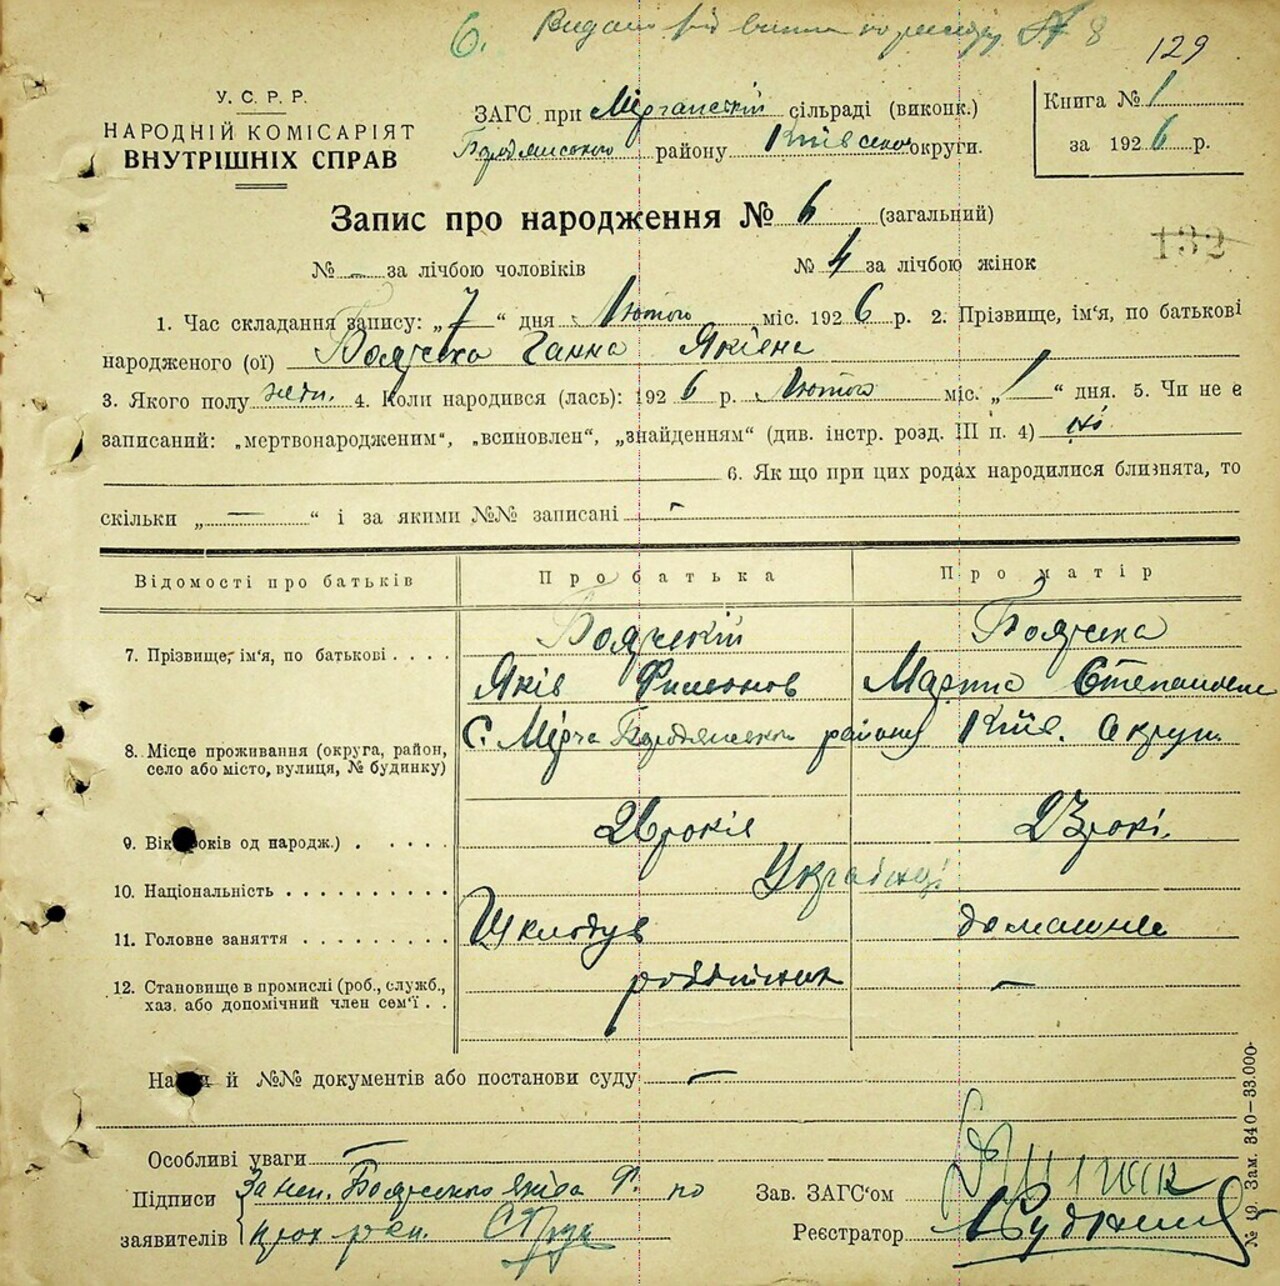 6. Видано
129
У. С. Р. Р.
НАРОДНІЙ КОМІСАРІЯТ
ВНУТРІШНІХ СПРАВ
ЗАГС при Мірчанскій сільраді (виконк.)
Бородянського району Київської округи.
Книга № 1
за 1926 р.
Запис про народження № 6 (загальний)
132
№ – за лічбою чоловіків № 4 за лічбою жінок
1. Час складання запису: „7“ дня Лютого міс. 1926 р. 2. Прізвище, ім'я, по батькові
народженого (ої) Боярска Ганна Яківна
3. Якого полу жін. 4. Коли народився (лась): 1926 р. Лютого міс. „1“ дня. 5. Чи не є
записаний: „мертвонародженим“, „всиновлен“, „знайденням“ (див. інстр. розд. III п. 4) ні
6. Як що при цих родах народилися близнята, то
скільки „ – “ і за якими №№ записані –
Відомості про батьків Про батька Про матір
7. Прізвище, ім'я, по батькові . . . . Боярскій Боярска
Яків Филімонов Марта Степановна
8. Місце проживання (округа, район, село або місто, вулиця, № будинку) С. Мірча Бородянського району Київ. Округи
9. Вік років од народж.) . . . . . 26 років 23 рокі.
10. Національність . . . . . . . . . . Українці
11. Головне заняття . . . . . . . . . домашне
12. Становище в промислі (роб., служб., хаз. або допомічний член сем'ї . . робітник –
й №№ документів або постанови суду –
Особливі уваги –
Підписи За неп. Боярского Якова Ф. по
заявителів
Зав. ЗАГС'ом
Реєстратор
№ 19. Зам. 340—33.000